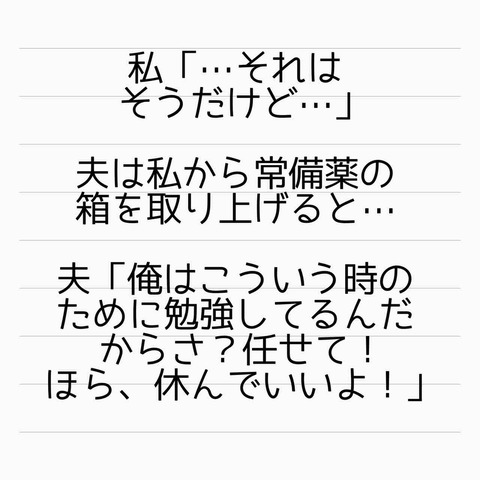 私「…それは
そうだけど…」
夫は私から常備薬の
箱を取り上げると…
夫「俺はこういう時の
ために勉強してるんだ
からさ？任せて！
ほら、休んでいいよ！」